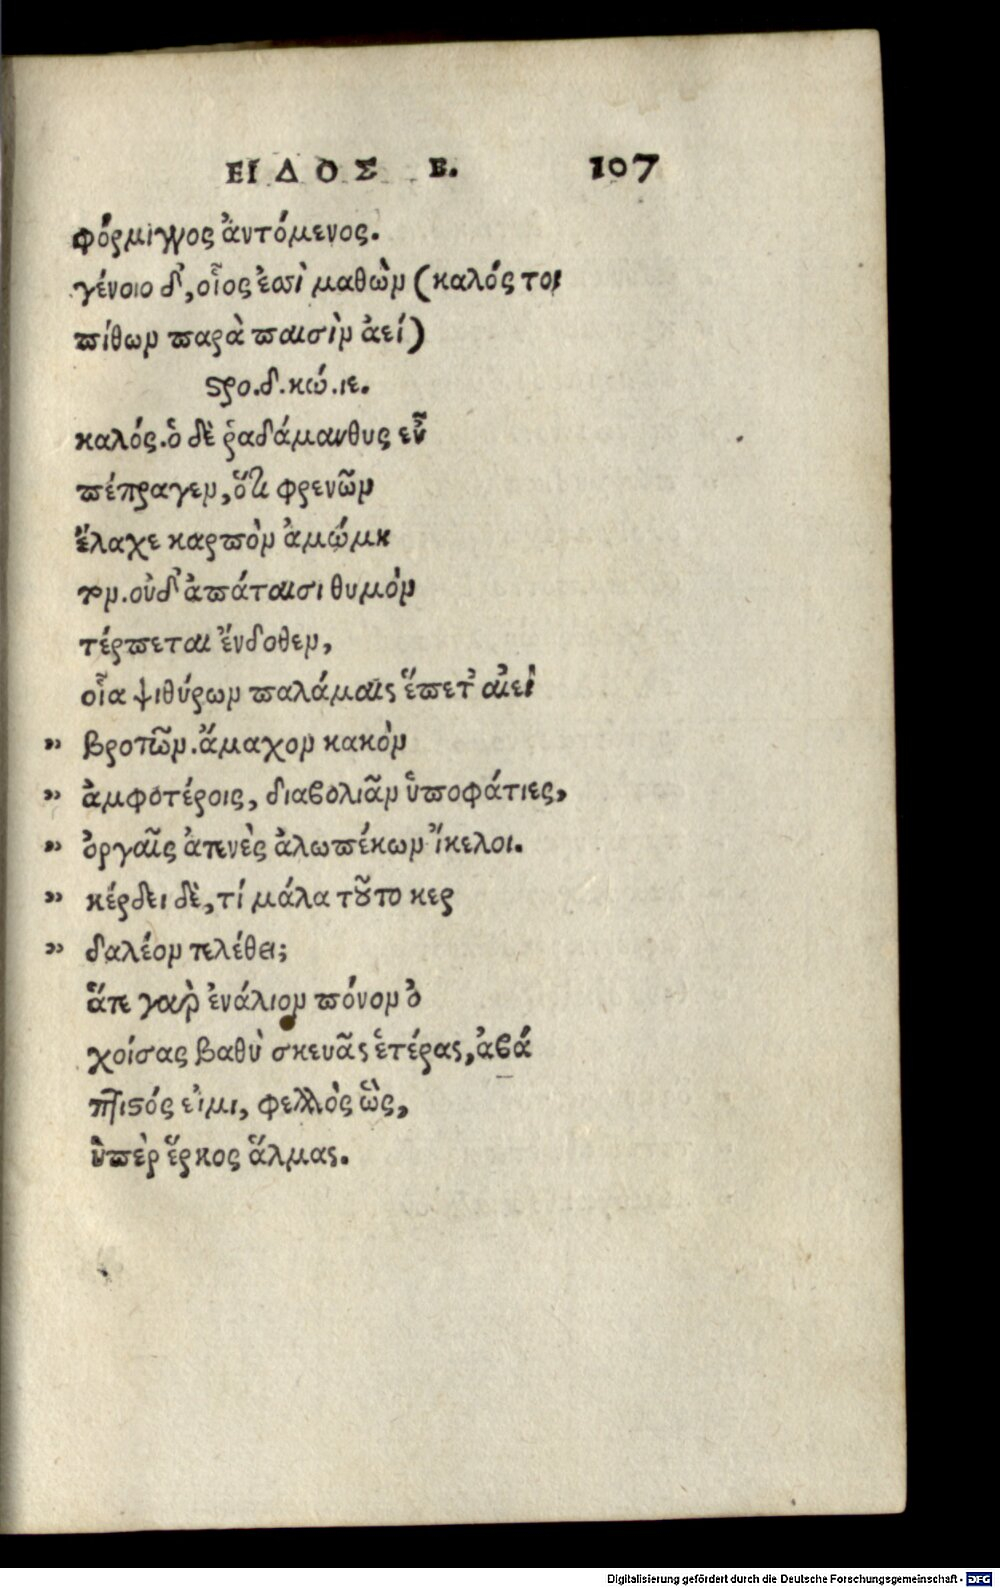 ΕΙΔΟΣ Ε. 107
φόρμιγγος ἀντόμενος.
γένοιο δ', οἷος ἐσσὶ μαθὼν (καλός τοι
πίθων παρὰ παισὶν ἀεί)
στρο.δ.κώ.ιε.
καλός. ὁ δὲ ῥαδάμανθυς εὖ
πέπραγεν, ὅτι φρενῶν
ἔλαχε καρπὸν ἀμώμη
τον. οὐδ' ἀπάταισι θυμὸν
τέρπεται ἔνδοθεν,
οἷα ψιθύρων παλάμαις ἕπετ' αἰεὶ
" βροτῶν. ἄμαχον κακὸν
" ἀμφοτέροις, διαβολιᾶν ὑποφάτιες,
" ὀργαῖς ἀτενὲς ἀλωπέκων ἴκελοι.
" κέρδει δὲ, τί μάλα τοῦτο κερ
" δαλέον τελέθει;
ἅτε γὰρ ἐνάλιον πόνον ὀ
χοίσας βαθὺ σκευᾶς ἑτέρας, ἀβά
πτιστός εἰμι, φελλὸς ὣς,
ὑπὲρ ἕρκος ἅλμας.
Digitalisierung gefördert durch die Deutsche Forschungsgemeinschaft - DFG